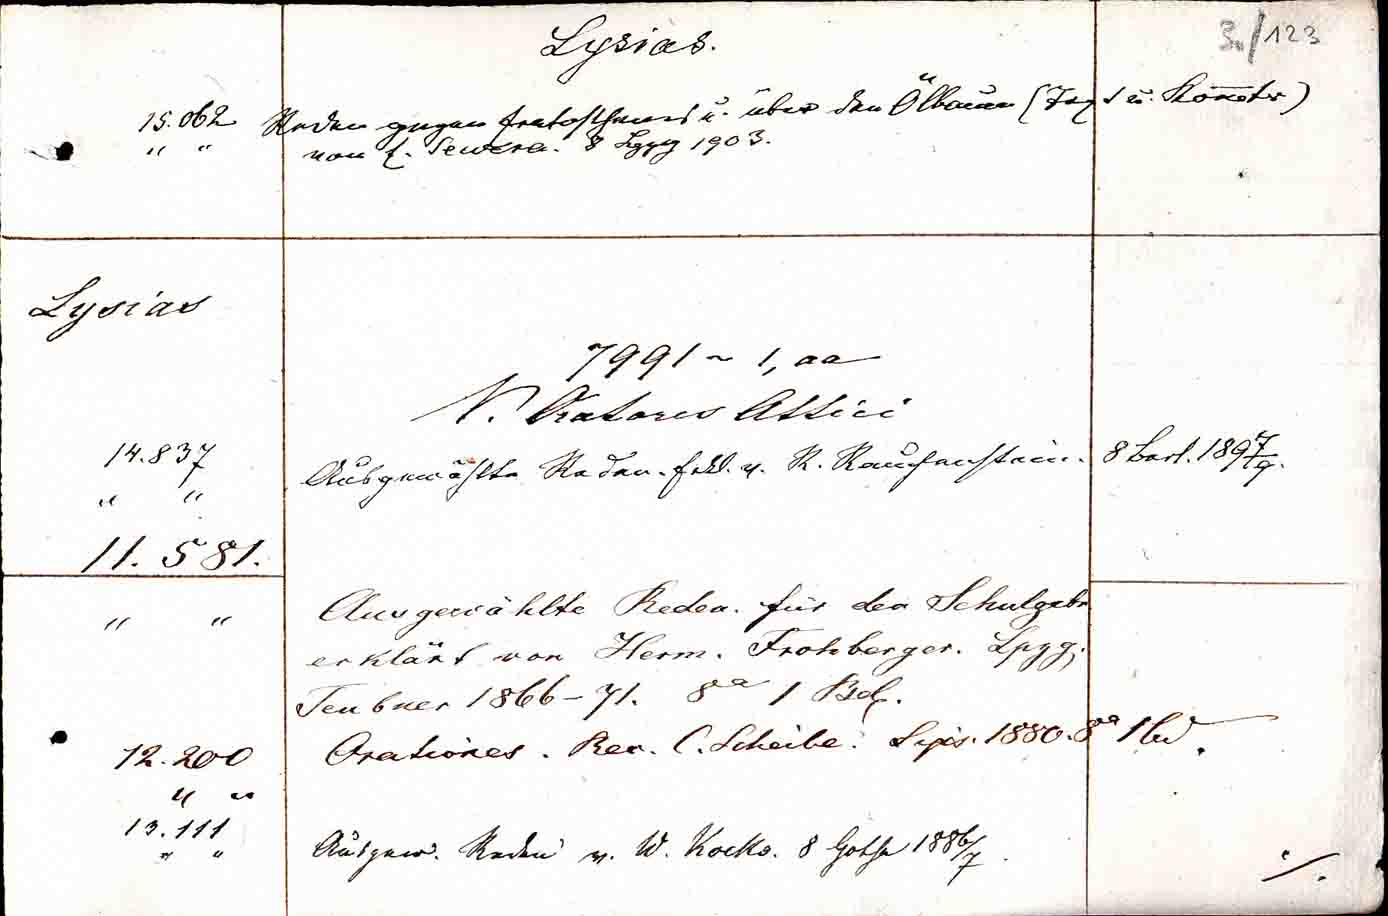 Lysias.
3./123
15.062 Reden gegen Eratosthenes u. über den Ölbaum (Text u. Komētr)
" " von E. Sewera. 8 Lpzg 1903.
Lysias
7991 ~ 1, aa
V. Oratores Attici
14.837 Ausgewählte Reden. Erkl. v. R. Rauchenstein. 8 Berl. 1897/9.
" "
11.581.
" " Ausgewählte Reden. für den Schulgebr
erklärt von Herm. Frohberger. Lpzg.
Teubner 1866-71. 8º 1 Bd.
12.200 Orationes. Rec. C. Scheibe. Lips. 1880. 8º 1 bd.
" "
13.111 Ausgew. Reden v. W. Kocks. 8 Gotha 1886/7.
" "
./.